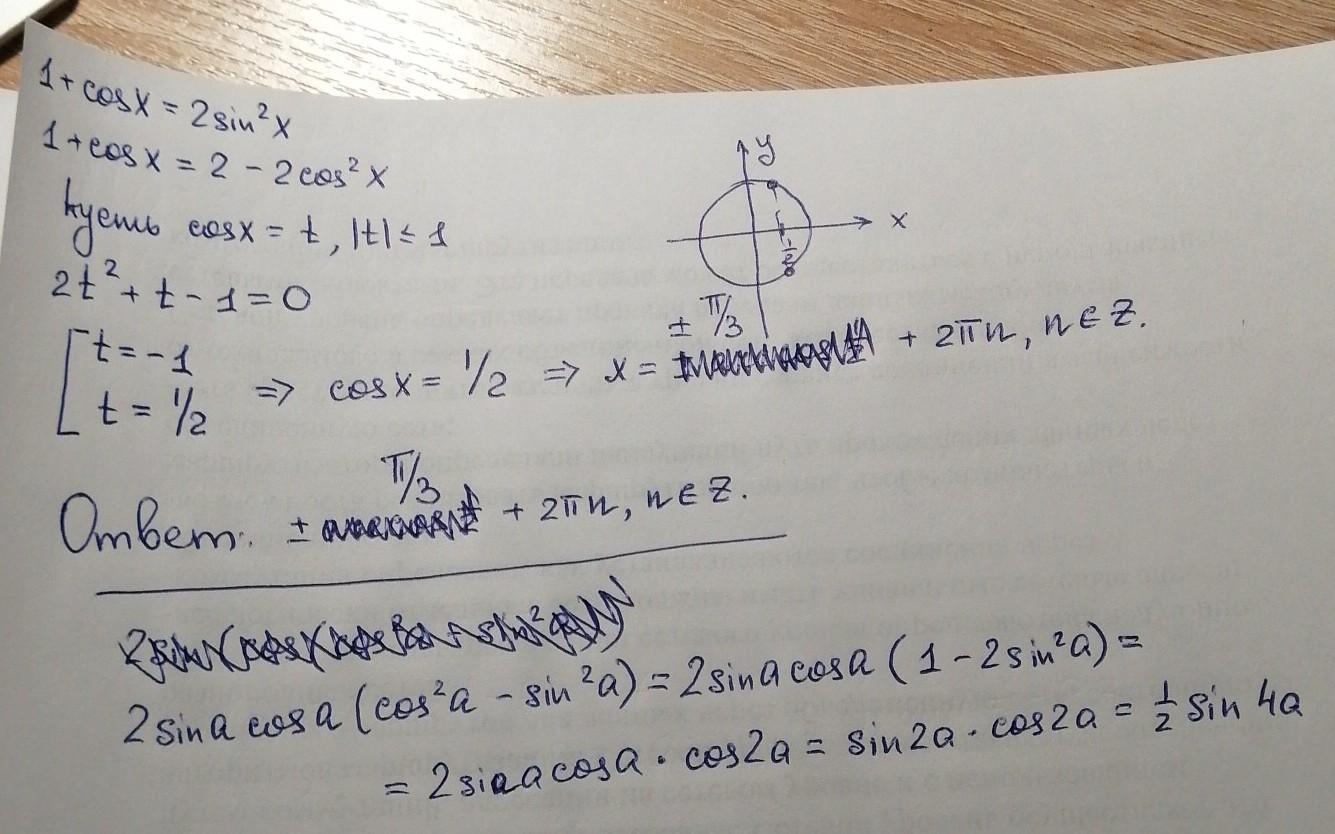 1 + cosx = 2sin²x
1 + cosx = 2 - 2cos²x
Пусть cosx = t, |t| ≤ 1
2t² + t - 1 = 0
[ t = -1
t = 1/2 ⇒ cosx = 1/2 ⇒ x = ± π/3 + 2πn, n ∈ Z.
y
x
1/2
Ответ: ± π/3 + 2πn, n ∈ Z.
2sina cosa (cos²a - sin²a) = 2sina cosa (1 - 2sin²a) =
= 2sina cosa · cos2a = sin2a · cos2a = 1/2 sin 4a